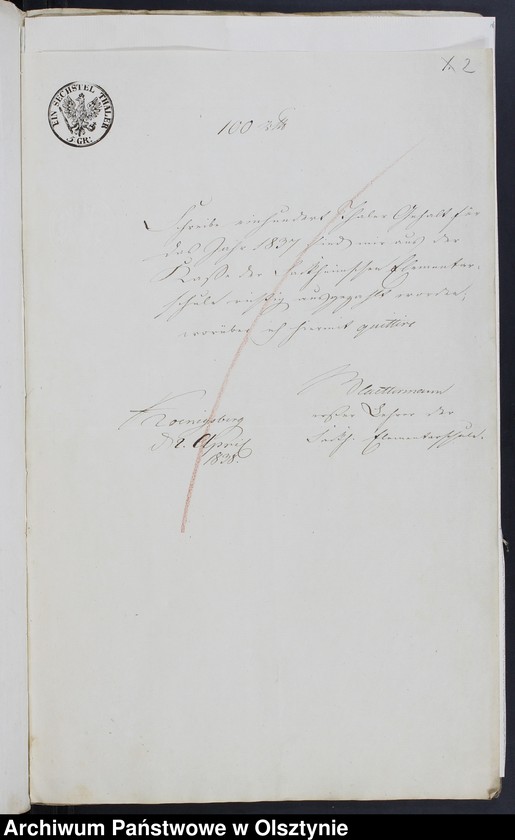 № 2
EIN SECHSTEL THALER
5 GR:
100 Rth
Schreibe einhundert Thaler Gehalt für
das Jahr 1837 sind mir aus der
Kasse der Sackheimschen Elementar-
schule richtig ausgezahlt worden,
worüber ich hiermit quittire
Koenigsberg
d 2. April
1838.
Blaettermann
erster Lehrer der
Sackh. Elementarschule.
Archiwum Państwowe w Olsztynie